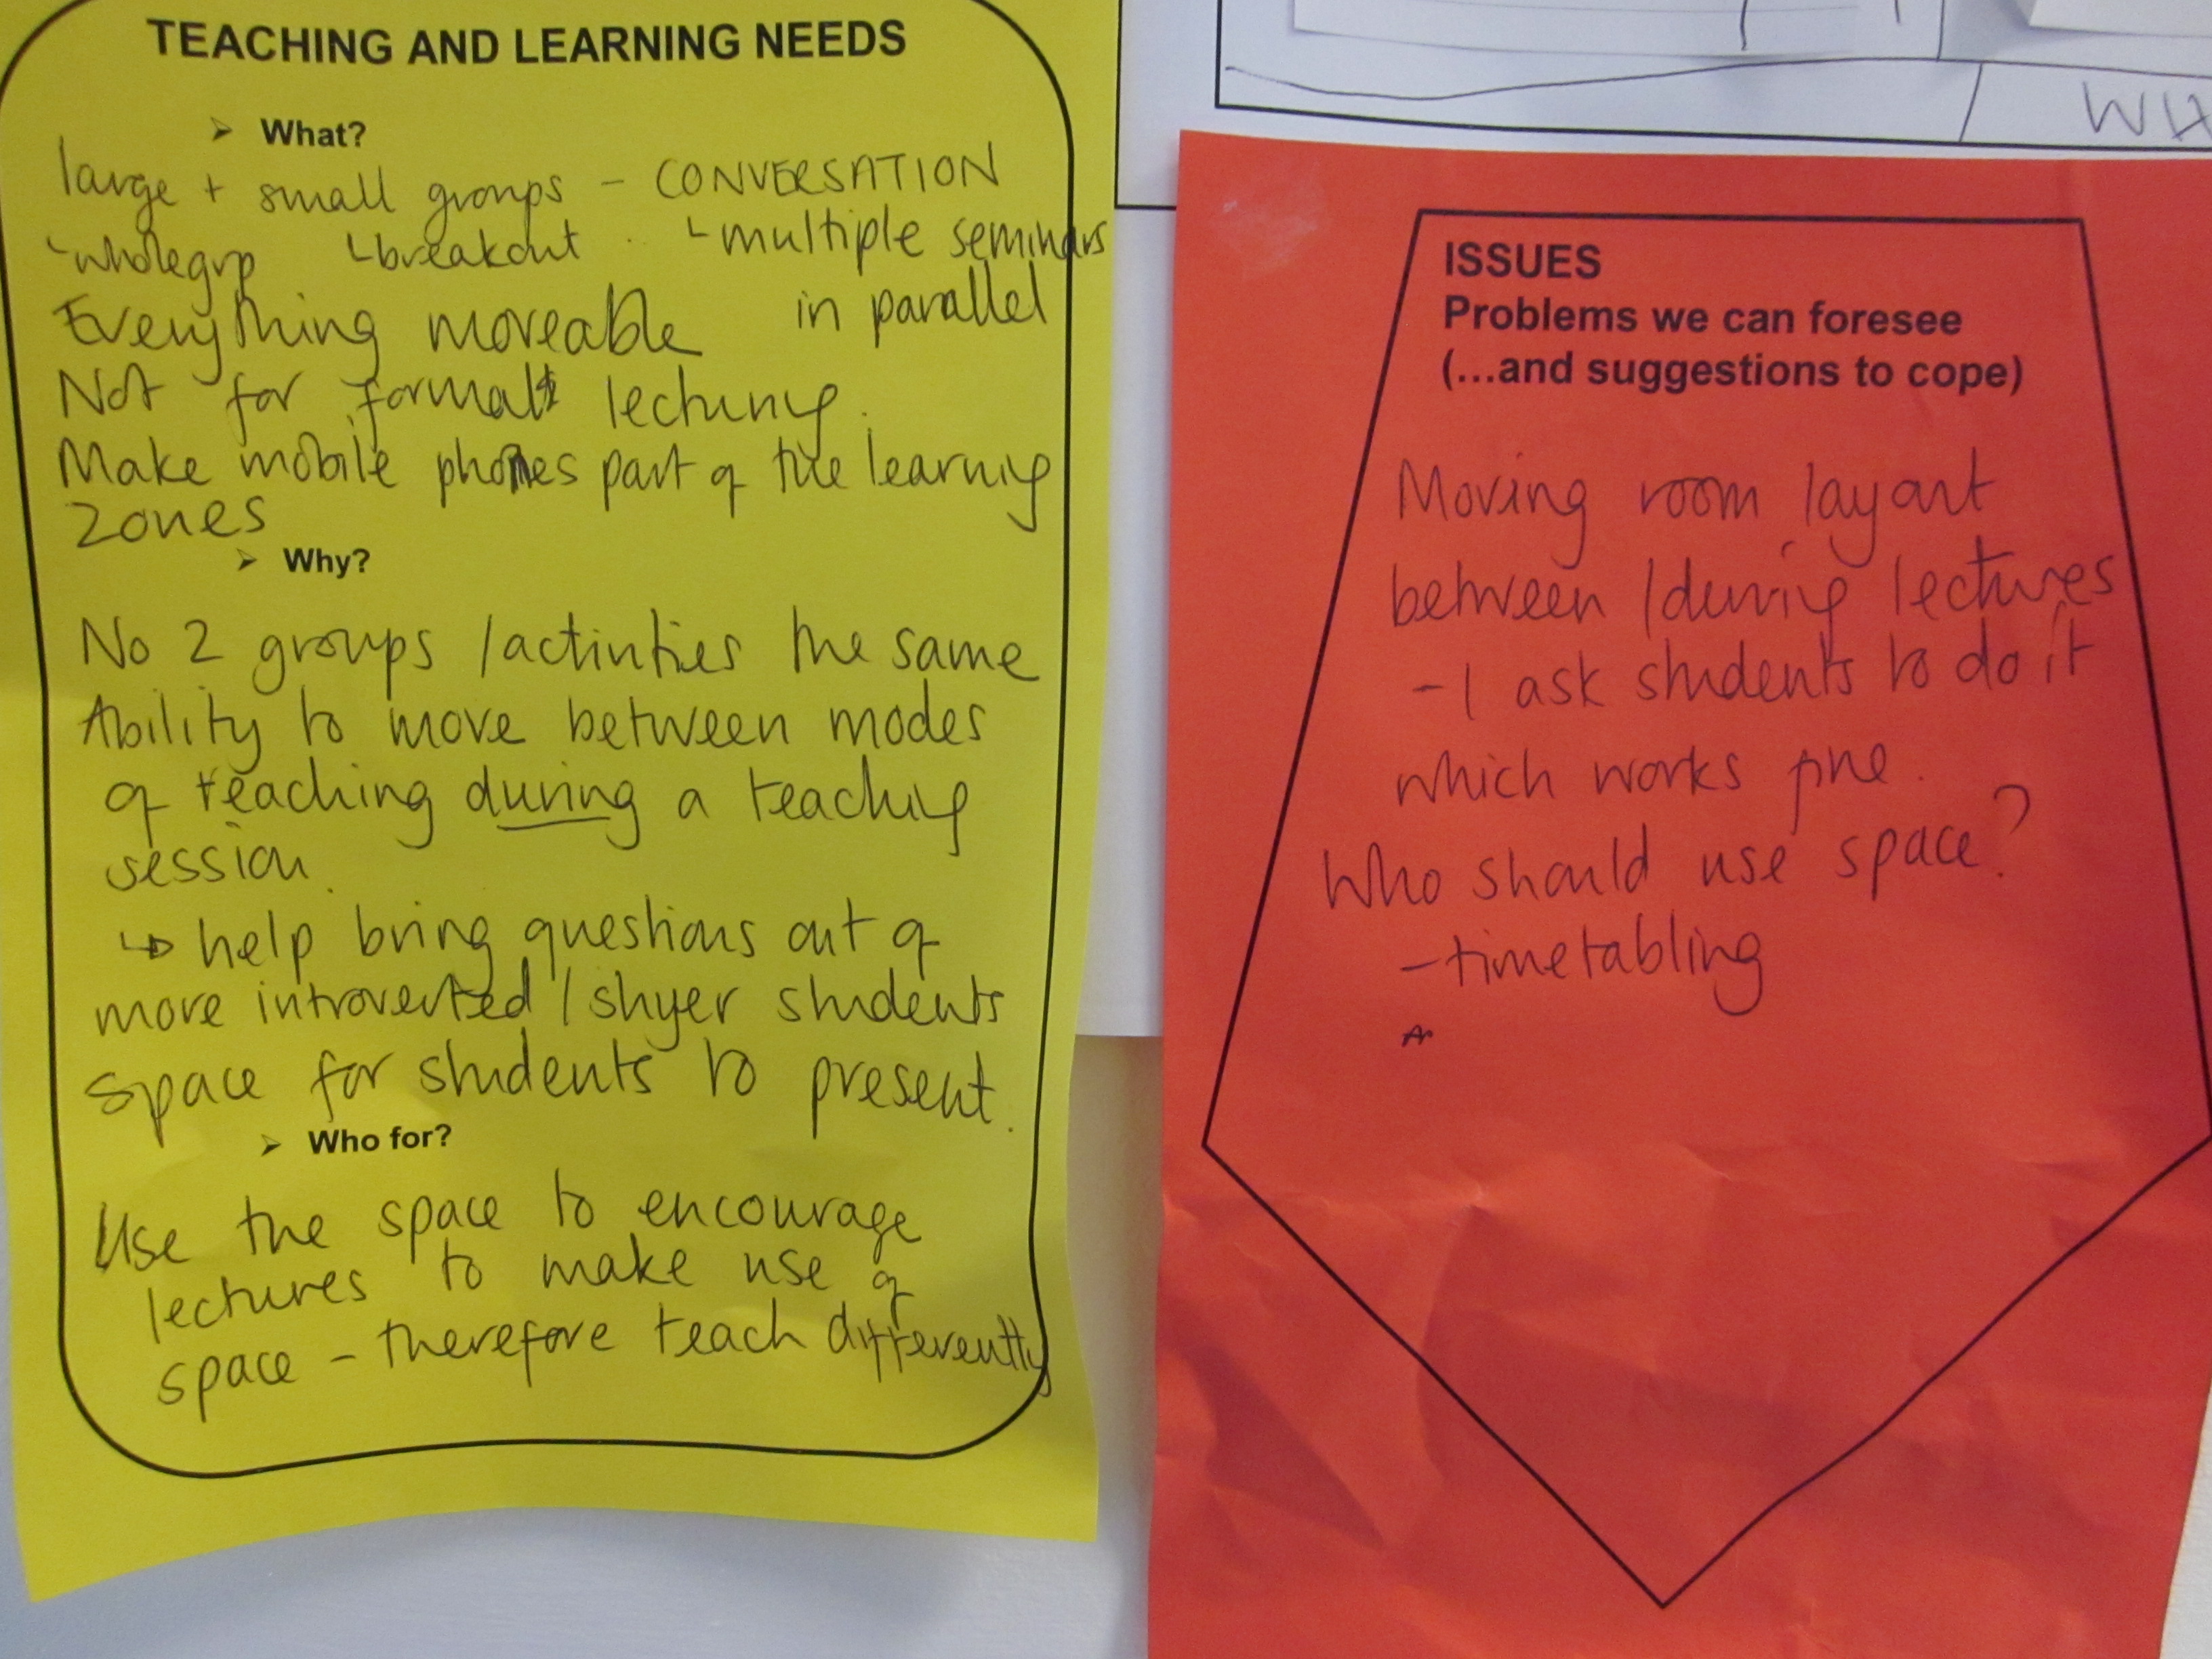 TEACHING AND LEARNING NEEDS
➢ What?
large + small groups - CONVERSATION
wholegrp breakout multiple seminars
in parallel
Everything moveable
Not for formal lecturing.
Make mobile phones part of the learning
zones
➢ Why?
No 2 groups / activities the same
Ability to move between modes
of teaching during a teaching
session.
↳ help bring questions out of
more introverted / shyer students
space for students to present.
➢ Who for?
Use the space to encourage
lectures to make use of
space - therefore teach differently
WH
ISSUES
Problems we can foresee
(...and suggestions to cope)
Moving room layout
between / during lectures
- I ask students to do it
which works fine.
Who should use space?
- timetabling